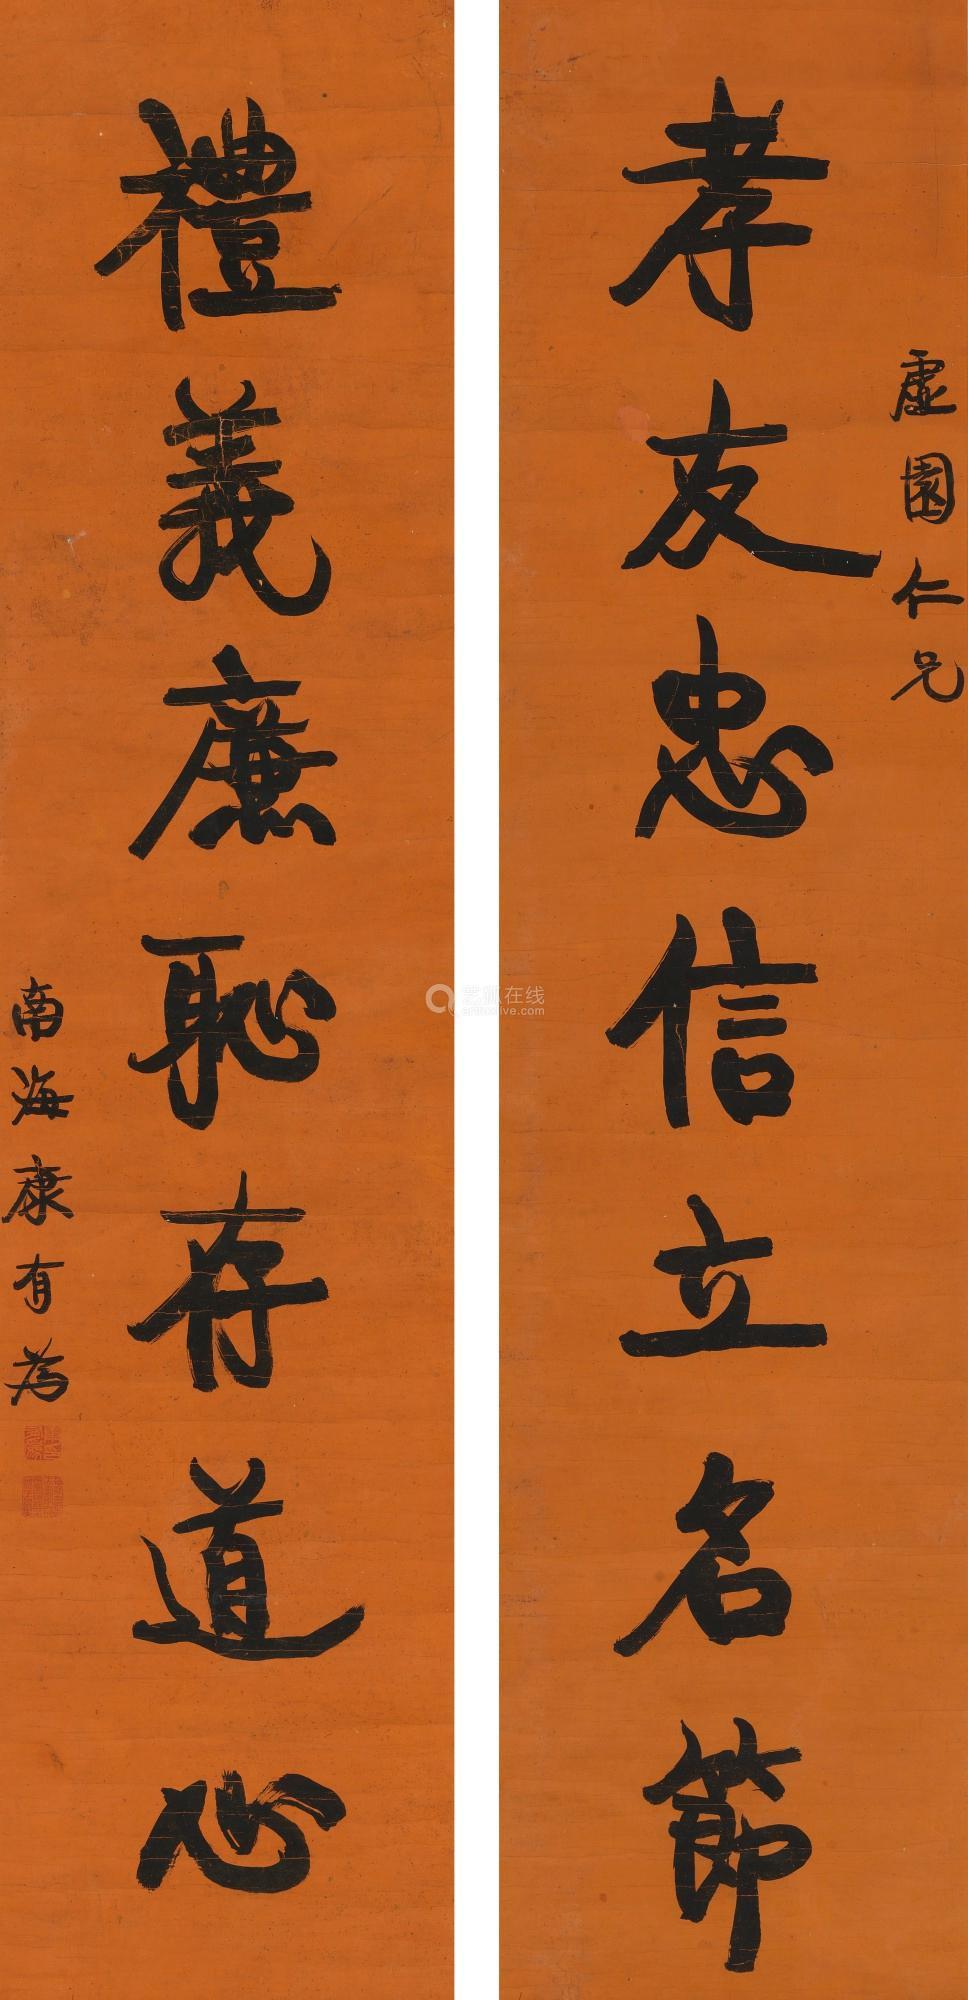 虛園仁兄
孝友忠信立名節
禮義廉恥存道心
南海康有為
艺狐在线
artfoxlive.com